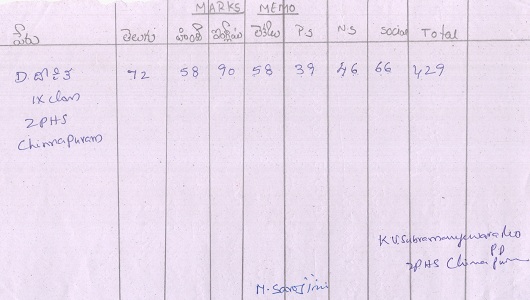 MARKS MEMO
పేరు తెలుగు హిందీ ఇంగ్లీషు లెక్కలు P.S N.S Social Total
D. 72 58 90 58 39 46 66 429
IX Class
ZPHS
Chinnapuram
K.V. Subramanyewara Rao
PP
ZPHS Chinnapuram
M. Sarojini